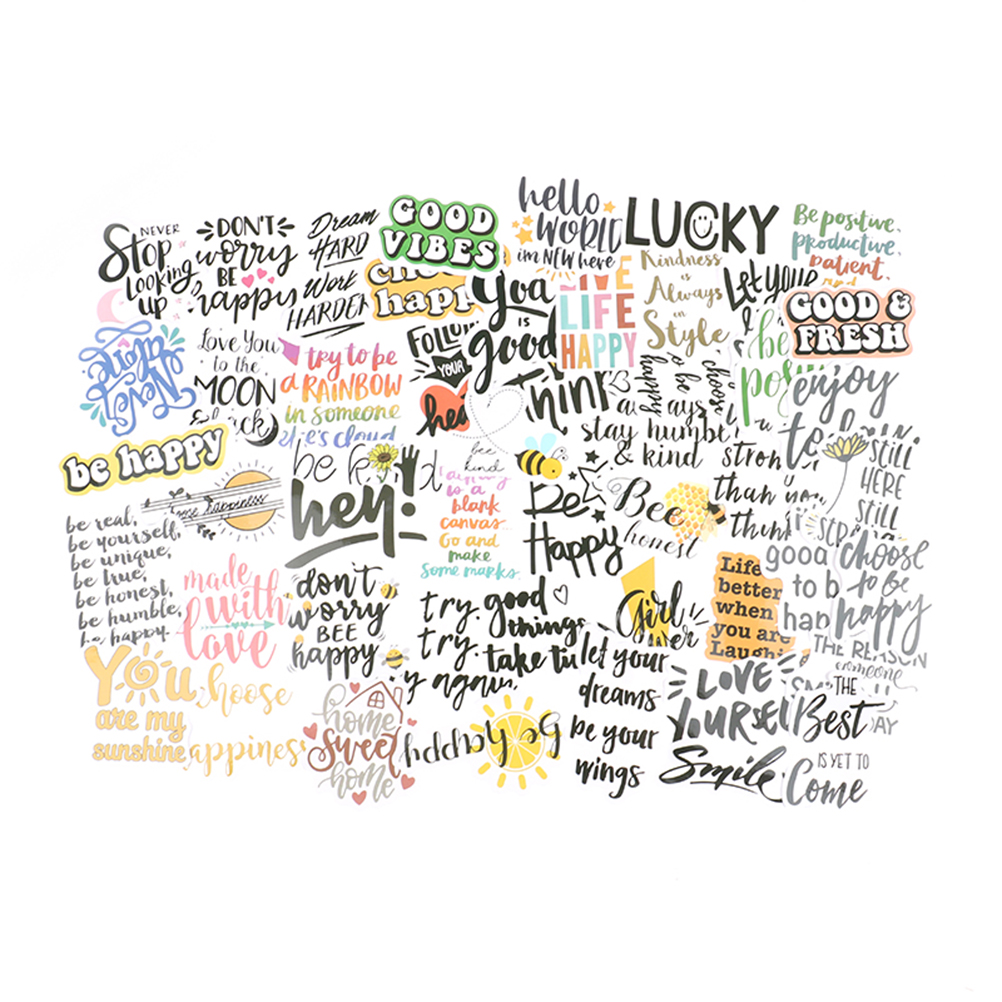 NEVER
Stop
Looking
up
DON'T
worry
BE
happy
Dream
HARD
Work
HARDER
GOOD
VIBES
happy
hello
WORLD
im NEW here
LUCKY
Be positive.
productive.
patient.
You
IS
good
LIVE
LIFE
HAPPY
Kindness
is
Always
in
Style
Let your
GOOD &
FRESH
Never
Love You
to the
MOON
& back
try to be
a RAINBOW
in someone
life's cloud
FOLLOW
YOUR
hea
choose
to be
happy
always
stay humble
& kind
be
enjoy
be happy
happiness
be k d
hey!
bee
kind
to a
blank
canvas.
Go and
make
some marks
Be
Happy
Bee
honest
strong
than you
think
STILL
HERE
STILL
be real,
be yourself,
be unique,
be true,
be honest,
be humble,
be happy.
made
with
love
don't
worry
BEE
happy
try.
try.
try again.
good
things
take
Girl
Life
better
when
you are
Laughi
good
to b
hap
choose
to be
happy
THE REASON
someone
You
are my
sunshine
choose
happiness
home
Sweet
home
Be Happy
let your
dreams
be your
wings
LOVE
YOURSELF
Smile
THE
Best
IS YET TO
Come